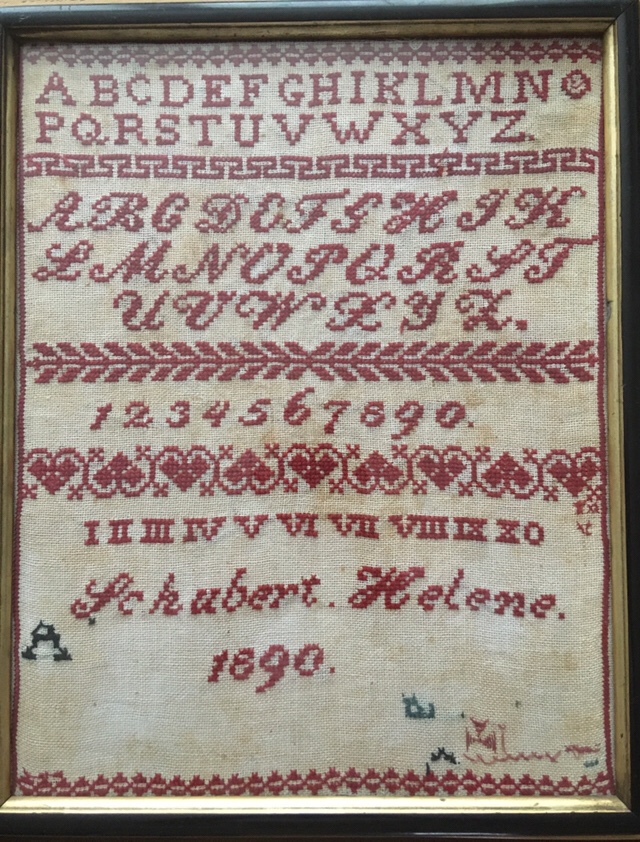 ABCDEFGHIKLMNO
PQRSTUVWXYZ
ABCDEFGHJK
LMNOPQRST
UVWXYZ.
1234567890.
I II III IV V VI VII VIII IX X O
Schubert. Helene.
A
1890.
A